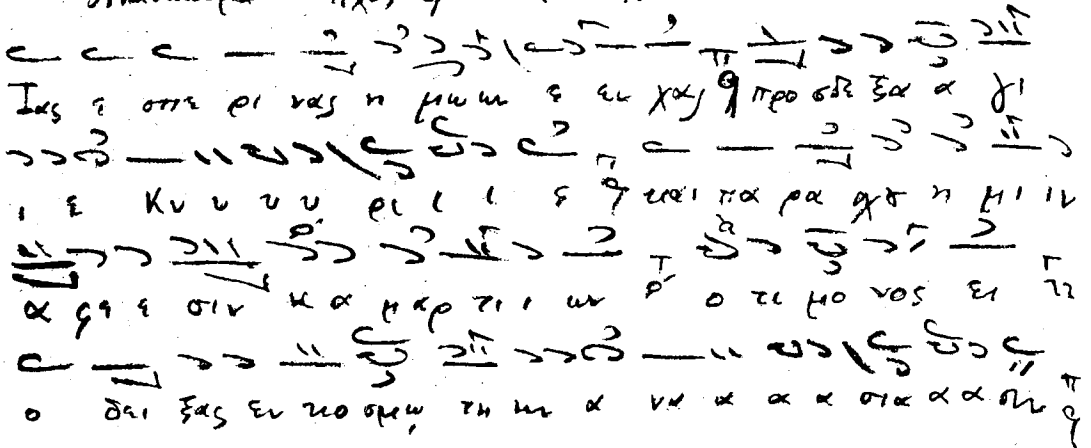 Τας ε σπε ρι νας η μω ων ε ευ χας προ σδε ξα α γι
ι ε Κυ υ υ υ ρι ι ι ε και πα ρα σχου η μι ιν
α φε ε σιν α μαρ τι ι ων ο τι μο νος ει
ο δει ξας εν κο σμω την α να α α α στα α α σιν